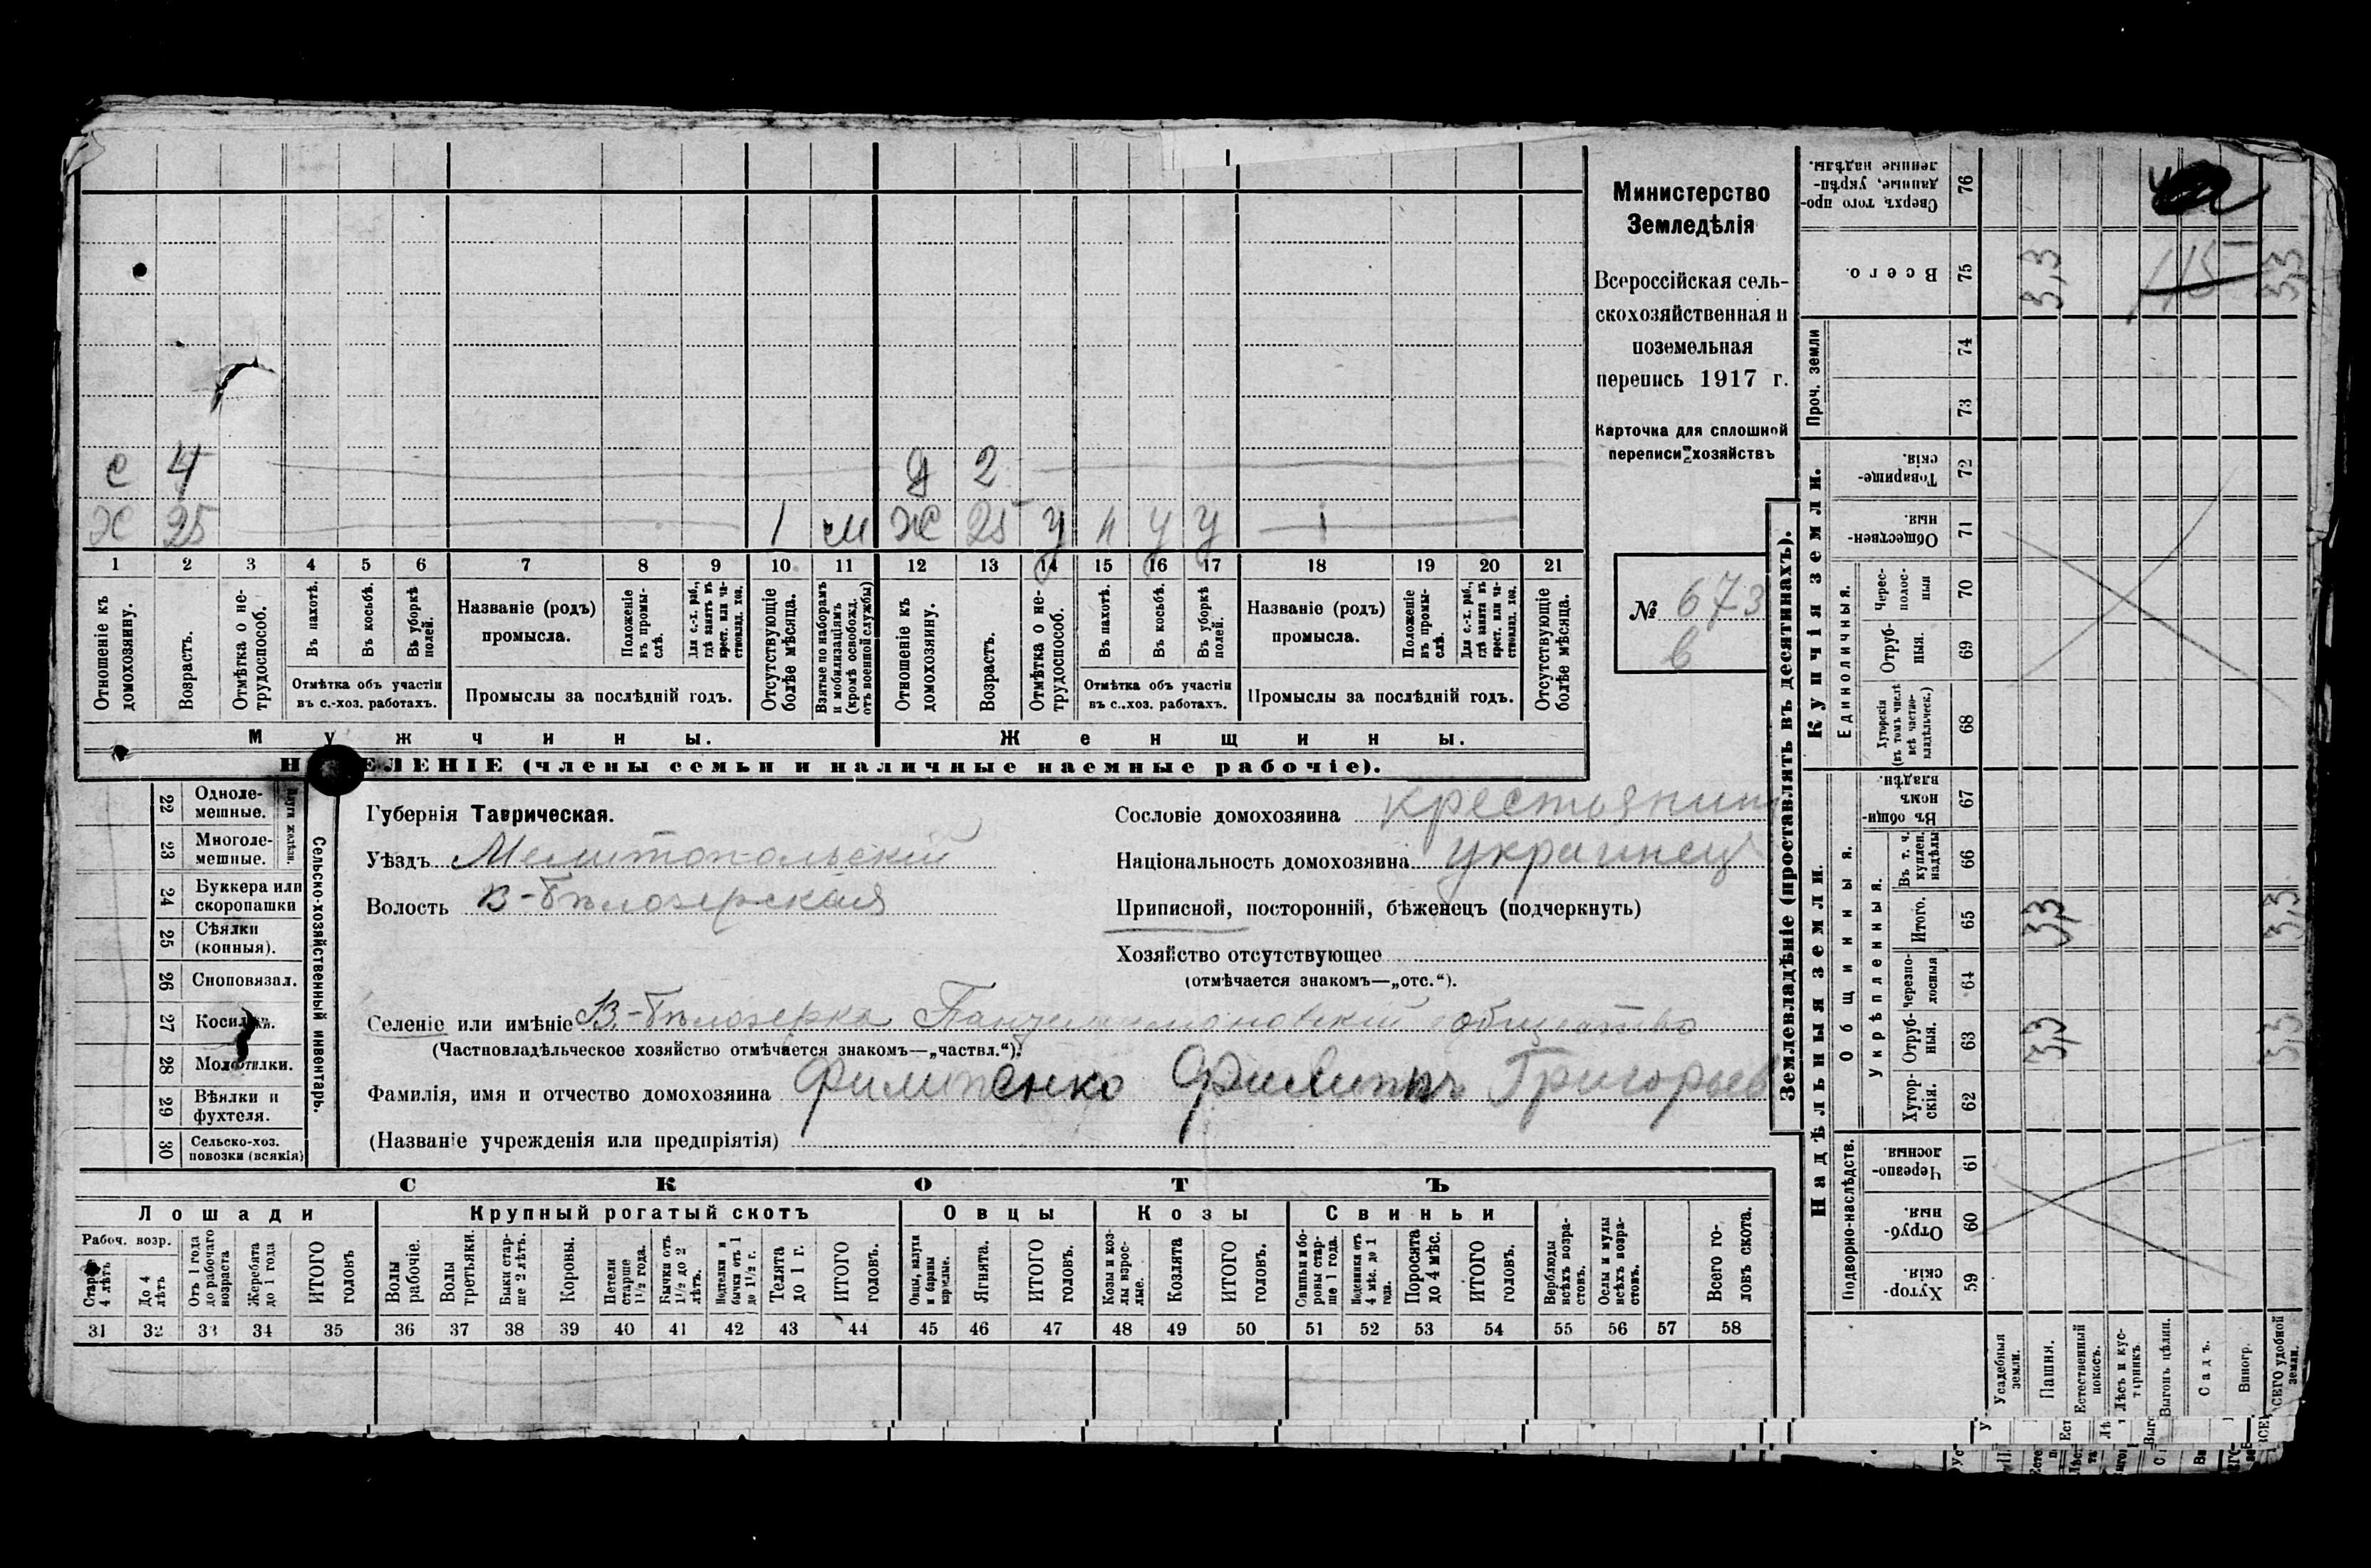 с 4 д 2
х 25 1 м ж 25 у п у у 1
1 2 3 4 5 6 7 8 9 10 11 12 13 14 15 16 17 18 19 20 21
Отношеніе къ домохозяину.
Возрастъ.
Отмѣтка о нетрудоспособ.
Въ пахотѣ.
Въ косьбѣ.
Въ уборкѣ полей.
Отмѣтка объ участіи
въ с.-хоз. работахъ.
Названіе (родъ)
промысла.
Положеніе въ промыслѣ.
Для с.-х. раб., гдѣ занятъ въ крест. или частновлад. хоз.
Промыслы за послѣдній годъ.
Отсутствующіе болѣе мѣсяца.
Взятые по наборамъ и мобилизаціямъ (кромѣ освобожд. отъ военной службы)
Отношеніе къ домохозяину.
Возрастъ.
Отмѣтка о нетрудоспособ.
Въ пахотѣ.
Въ косьбѣ.
Въ уборкѣ полей.
Отмѣтка объ участіи
въ с.-хоз. работахъ.
Названіе (родъ)
промысла.
Положеніе въ промыслѣ.
Для с.-х. раб., гдѣ занята въ крест. или частновлад. хоз.
Промыслы за послѣдній годъ.
Отсутствующіе болѣе мѣсяца.
Мужчины. Женщины.
ЕЛЕНІЕ (члены семьи и наличные наемные рабочіе).
Министерство
Земледѣлія
Всероссійская сель-
скохозяйственная и
поземельная
перепись 1917 г.
Карточка для сплошной
переписи хозяйствъ
№ 673
6
22 Одноле-
мешные.
23 Многоле-
мешные.
24 Буккера или
скоропашки
25 Сѣялки
(конныя).
26 Сноповязал.
27 Косилки.
28 Молотилки.
29 Вѣялки и
фухтеля.
30 Сельско-хоз.
повозки (всякія)
Сельско-хозяйственный инвентарь.
Губернія Таврическая.
Уѣздъ Мелитопольскій
Волость В-Бѣлозерская
Сословіе домохозяина крестьянин
Національность домохозяина украинец
Приписной, посторонній, бѣженецъ (подчеркнуть)
Хозяйство отсутствующее
(отмѣчается знакомъ—„отс.“).
Селеніе или имѣніе В.-Бѣлозерка Пантелеимоновскій общество
(Частновладѣльческое хозяйство отмѣчается знакомъ—„частвл.“).
Фамилія, имя и отчество домохозяина Филипенко Филиппъ Григорьев
(Названіе учрежденія или предпріятія)
СКОТЪ
Лошади Крупный рогатый скотъ Овцы Козы Свиньи
Рабоч. возр.
Старше 4 лѣтъ
До 4 лѣтъ
Отъ 1 года до рабочаго возраста
Жеребята до 1 года
ИТОГО головъ
Волы рабочіе.
Волы третьяки.
Быки старше 2 лѣтъ.
Коровы.
Нетели старше 1½ года.
Бычки отъ 1½ до 2 лѣтъ.
Нетелки и бычки отъ 1 до 1½ г.
Телята до 1 г.
ИТОГО головъ.
Овцы, валухи и бараны взрослые.
Ягнята.
ИТОГО головъ.
Козы и козлы взрослые.
Козлята
ИТОГО головъ.
Свиньи и боровы старше 1 года.
Подсвинки отъ 4 мѣс. до 1 года.
Поросята до 4 мѣс.
ИТОГО головъ.
Верблюды всѣхъ возрастовъ.
Ослы и мулы всѣхъ возрастовъ.
Всего головъ скота.
31 32 33 34 35 36 37 38 39 40 41 42 43 44 45 46 47 48 49 50 51 52 53 54 55 56 57 58
Землевладѣніе (проставлять въ десятинахъ).
Сверхъ того проданные, укрѣпленные надѣлы. 76
Всего. 75 3,3 3,3
Проч. земли 74
73
Купчія земли.
Товарищескія. 72
Общественныя. 71
Единоличныя.
Черезполосныя 70
Отрубныя. 69
Хуторскія (въ томъ числѣ всѣ частновладѣльческ.) 68
Надѣльныя земли.
Общинныя.
Въ общинномъ владѣн. 67
Укрѣпленныя.
Въ т. ч. куплен. надѣлы 66
Итого. 65 3,3 3,3
Черезполосныя 64
Отрубныя. 63 3,3 3,3
Хуторскія. 62
Подворно-наслѣдств.
Черезполосныя. 61
Отрубныя. 60
Хуторскія. 59
Усадебныя земли.
Пашня.
Естественный покосъ.
Лѣсъ и кустарникъ.
Выгонъ цѣлин.
Садъ.
Виногр.
ВСЕГО удобной земли.